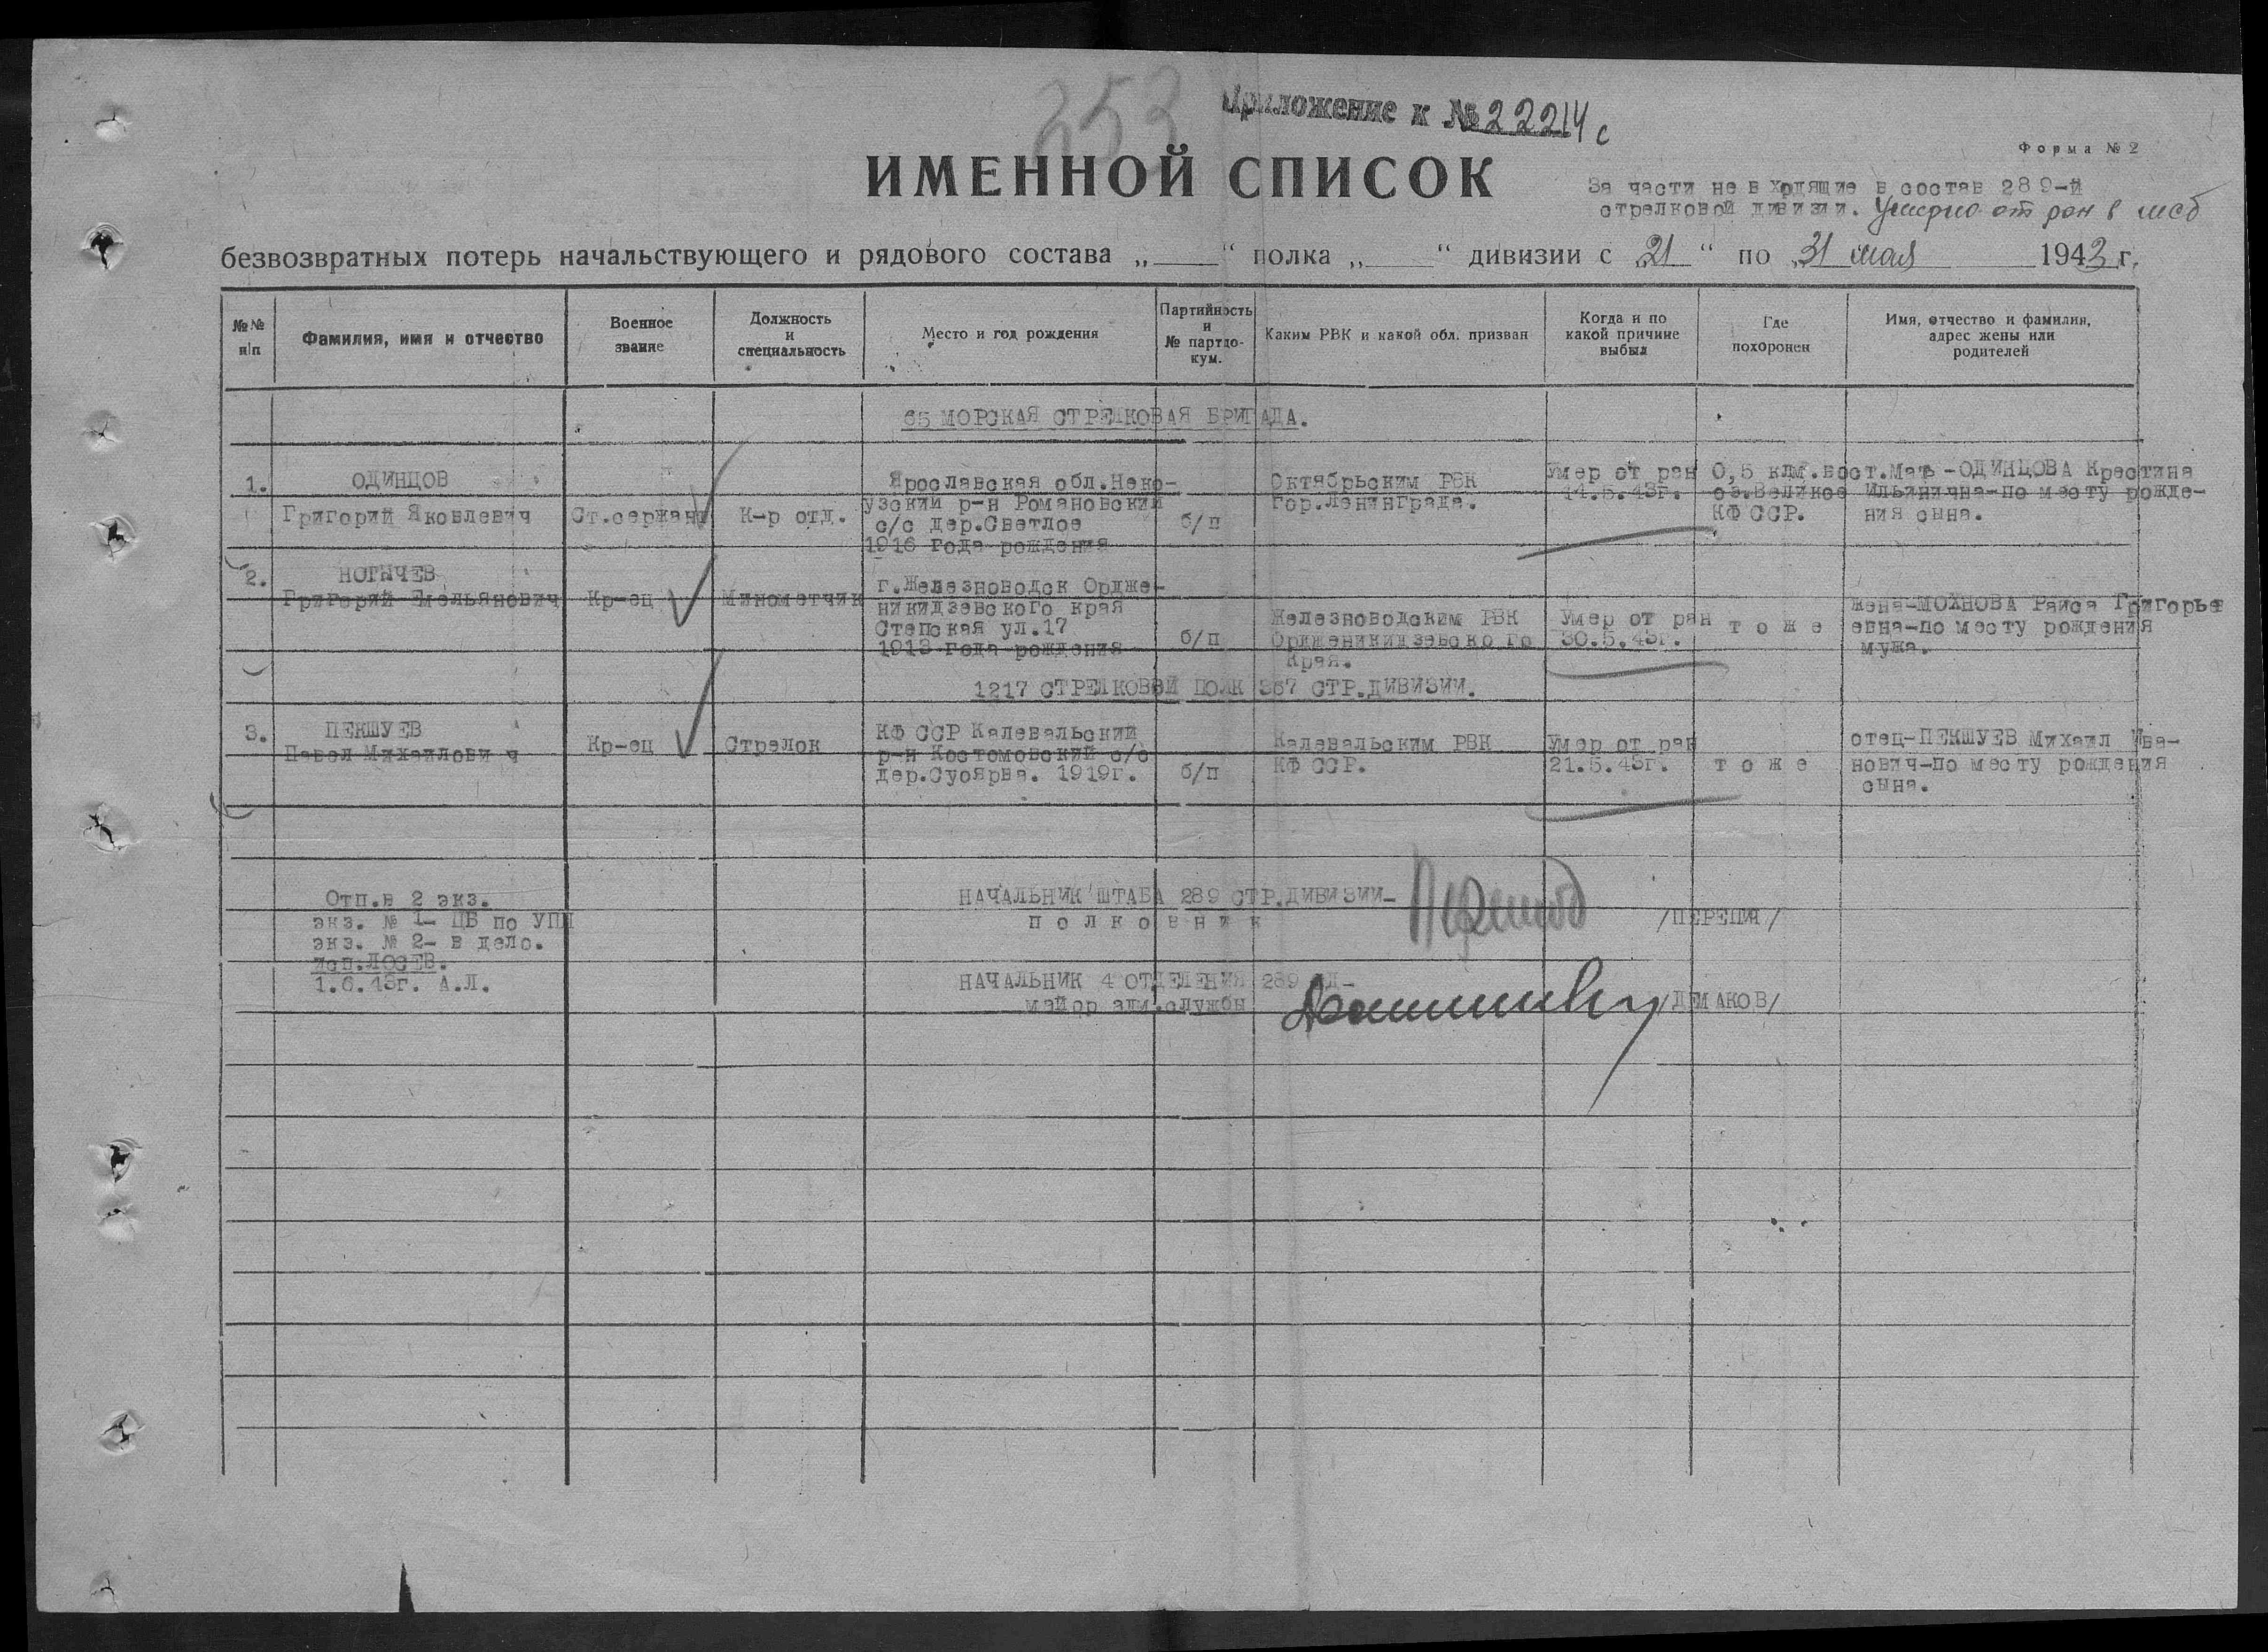 353
Приложение к № 22214с
Форма № 2
ИМЕННОЙ СПИСОК
За части не входящие в состав 289-й
стрелковой дивизии. Умерло от ран в мсб
безвозвратных потерь начальствующего и рядового состава „____“ полка „____“ дивизии с „21“ по „31 мая 1943 г.
№№ п/п
Фамилия, имя и отчество
Военное звание
Должность и специальность
Место и год рождения
Партийность и № партдокум.
Каким РВК и какой обл. призван
Когда и по какой причине выбыл
Где похоронен
Имя, отчество и фамилия, адрес жены или родителей
65 МОРСКАЯ СТРЕЛКОВАЯ БРИГАДА.
1.
ОДИНЦОВ
Григорий Яковлевич
Ст.сержант
К-р отд.
Ярославская обл.Неко-
узский р-н Романовский
с/с дер.Светлое
1916 года рождения
б/п
Октябрьским РВК
гор.Ленинграда.
Умер от ран
14.5.43г.
0,5 клм.вост.
оз.Великое
КФ ССР.
Мать-ОДИНЦОВА Крестина
Ильинична-по месту рожде-
ния сына.
2.
НОГЫЧЕВ
Григорий Емельянович
Кр-ец
Минометчик
г.Железноводск Ордже-
никидзевского края
Степская ул.17
1913 года рождения
б/п
Железноводским РВК
Орджени­кидзевского
края.
Умер от ран
30.5.43г.
т о ж е
жена-МОХНОВА Раиса Григорье
евна-по месту рождения
мужа.
1217 СТРЕЛКОВЫЙ ПОЛК 367 СТР.ДИВИЗИИ.
3.
ПЕКШУЕВ
Павел Михайлович
Кр-ец
Стрелок
КФ ССР Калевальский
р-н Костомовский с/с
дер.Суоярва. 1919г.
б/п
Калевальским РВК
КФ ССР.
Умер от ран
21.5.43г.
т о ж е
отец-ПЕКШУЕВ Михаил Ива-
нович-по месту рождения
сына.
Отп.в 2 экз.
экз. № 1- ЦБ по УПП
экз. № 2- в дело.
исп.ЛОСЕВ.
1.6.43г. А.Л.
НАЧАЛЬНИК ШТАБА 289 СТР.ДИВИЗИИ-
п о л к о в н и к
/ПЕРЕПИЧ/
НАЧАЛЬНИК 4 ОТДЕЛЕНИЯ 289 СД-
майор адм.службы
/ДЕМАКОВ/